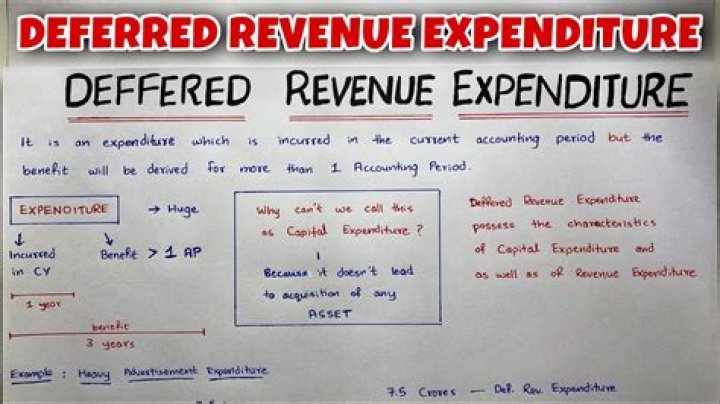 DEFERRED REVENUE EXPENDITURE
DEFFERED REVENUE EXPENDITURE
It is an expenditure which is incurred in the current accounting period but the
benefit will be derived for more than 1 Accounting Period.
EXPENDITURE → Huge
↓ ↘
Incurred Benefit > 1 AP
in CY
1 year
benefit
3 years
Why can't we call this
as Capital Expenditure ?
Because it doesn't lead
to acquisition of any
ASSET
Deffered Revenue Expenditure
possess the characteristics
of Capital Expenditure and
as well as of Revenue Expenditure
Example : Heavy Advertisement Expenditure
7.5 Crores — Def. Rev. Expenditure